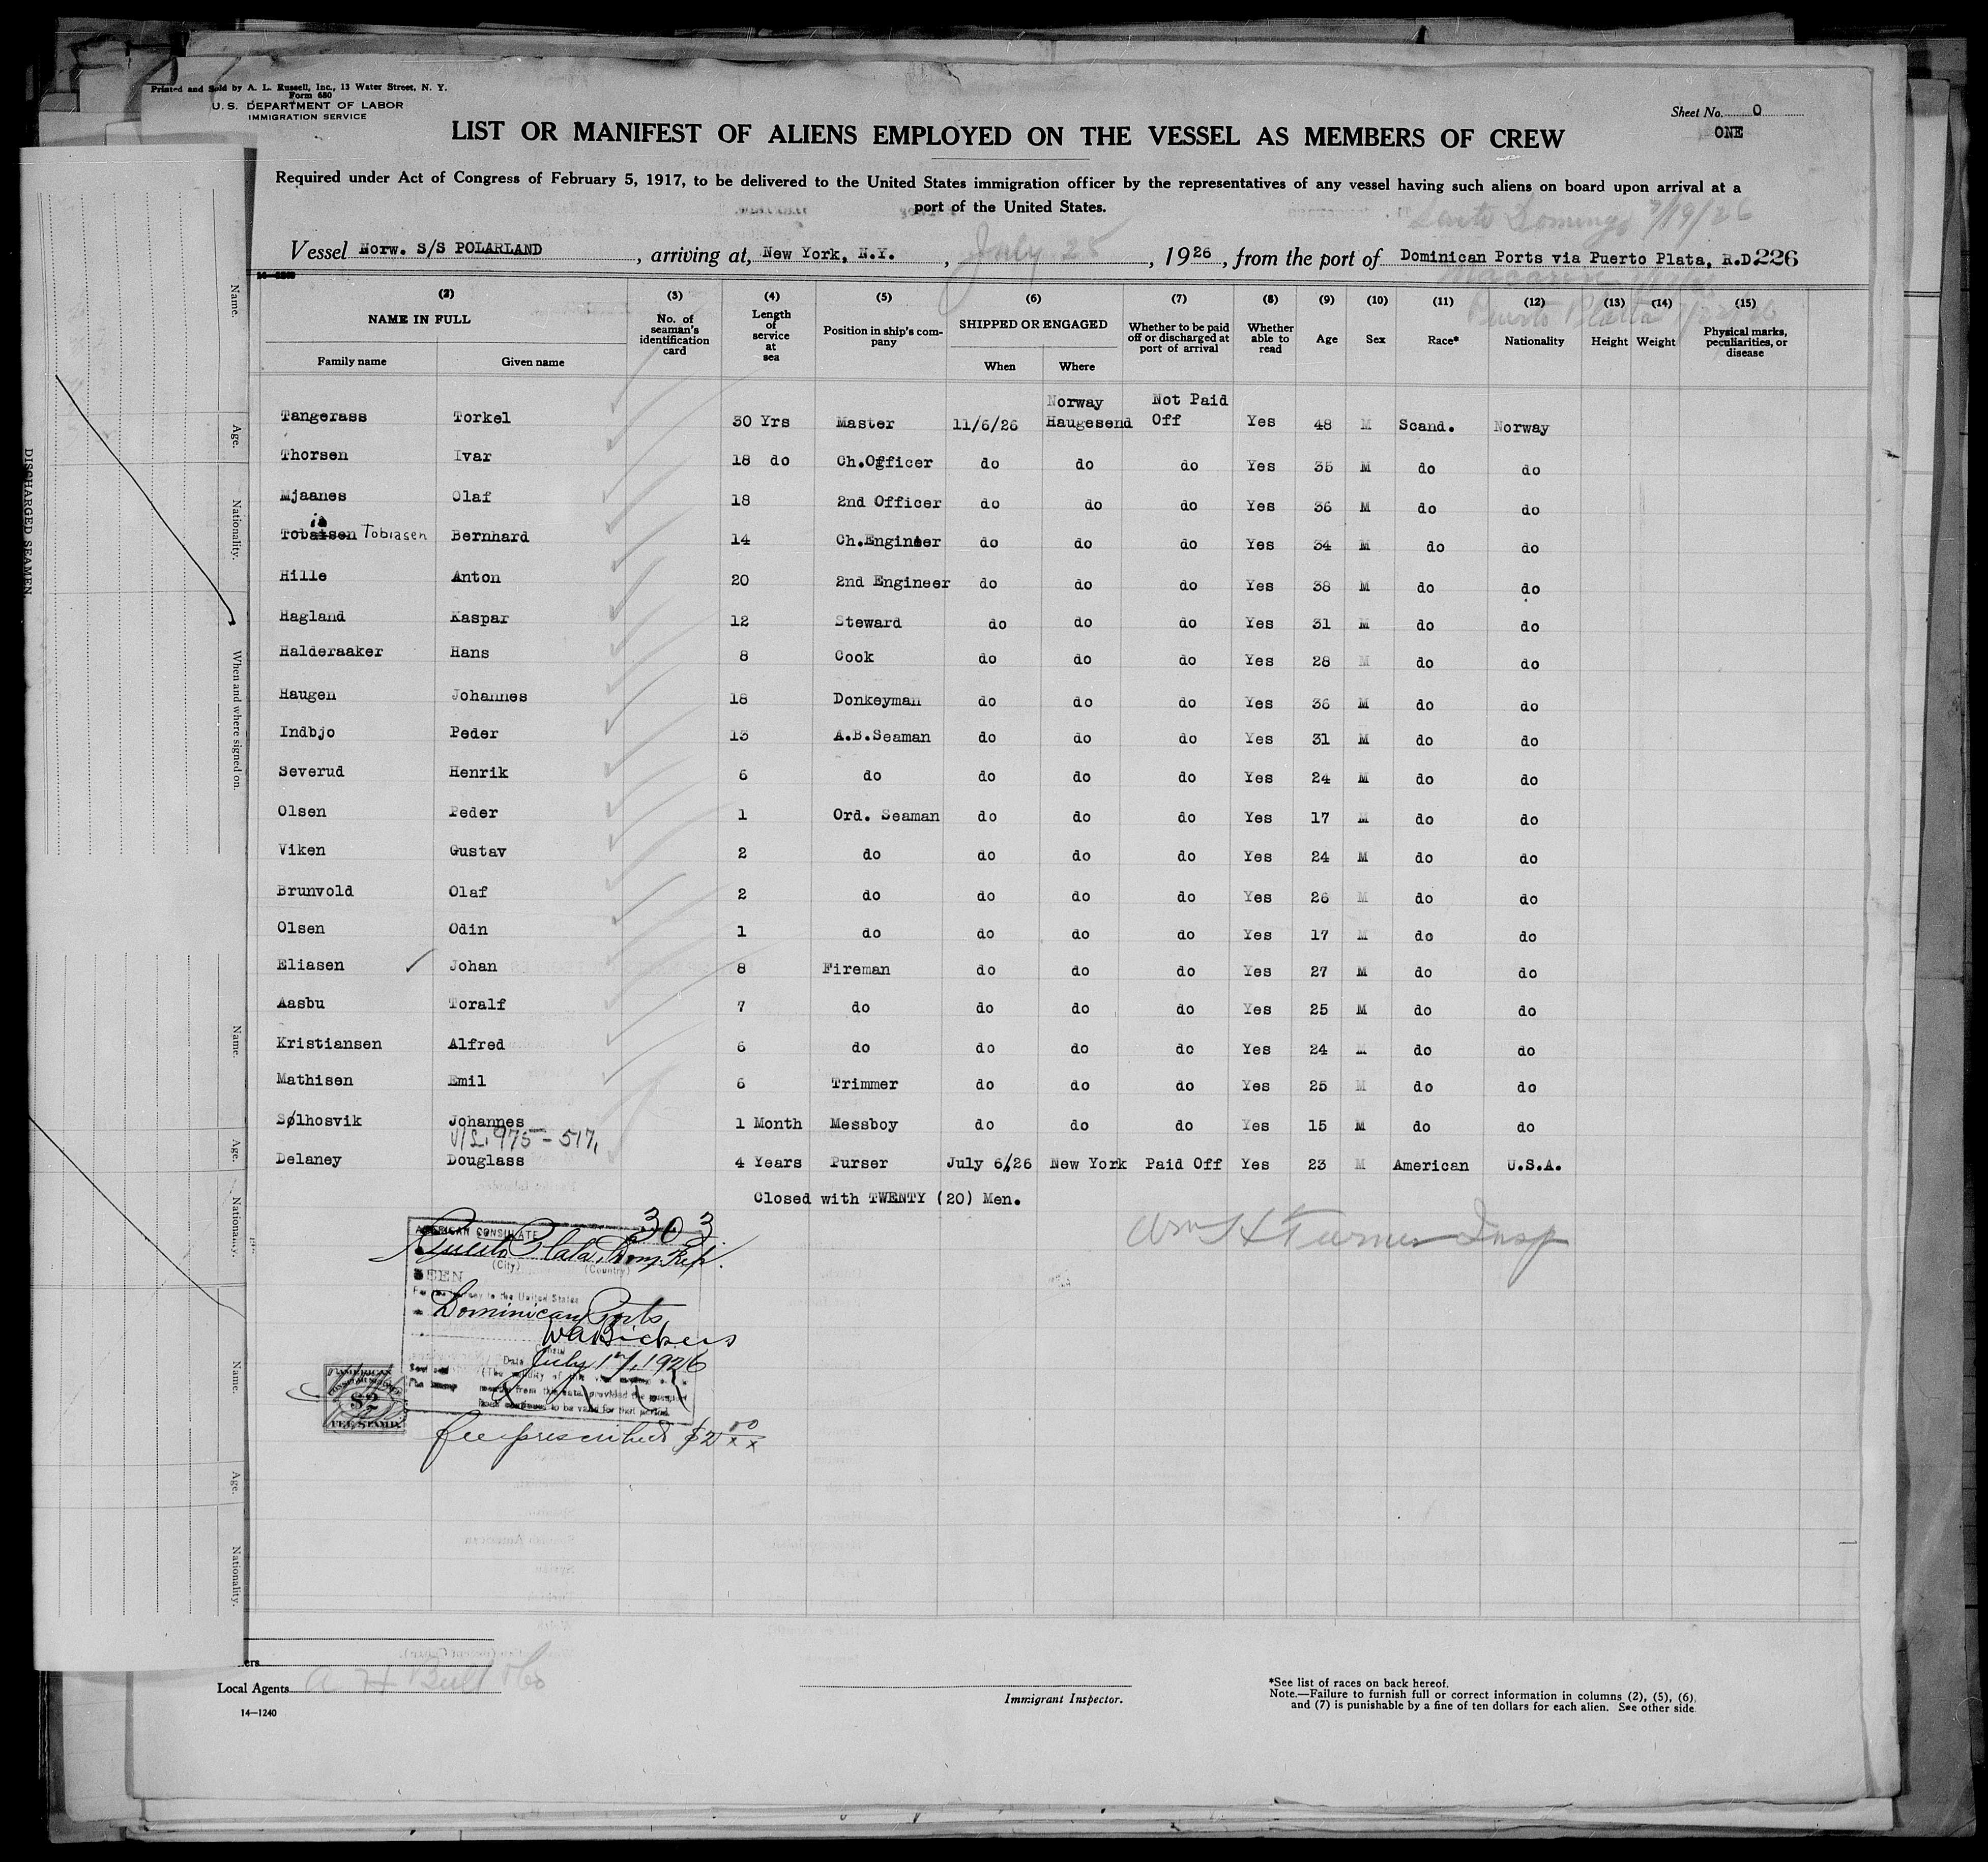 Printed and Sold by A. L. Russell, Inc., 13 Water Street, N. Y.
Form 680
U. S. DEPARTMENT OF LABOR
IMMIGRATION SERVICE
Sheet No. O
ONE
LIST OR MANIFEST OF ALIENS EMPLOYED ON THE VESSEL AS MEMBERS OF CREW
Required under Act of Congress of February 5, 1917, to be delivered to the United States immigration officer by the representatives of any vessel having such aliens on board upon arrival at a
port of the United States.
Santo Domingo 7/19/26
Vessel Norw. S/S POLARLAND, arriving at, New York, N.Y., July 28, 1926, from the port of Dominican Ports via Puerto Plata, R.D. 226
Puerto Plata
14-1240
(2) (3) (4) (5) (6) (7) (8) (9) (10) (11) (12) (13) (14) (15)
NAME IN FULL No. of seaman's identification card Length of service at sea Position in ship's company SHIPPED OR ENGAGED Whether to be paid off or discharged at port of arrival Whether able to read Age Sex Race* Nationality Height Weight Physical marks, peculiarities, or disease
Family name Given name When Where
Tangerass Torkel 30 Yrs Master 11/6/26 Norway Haugesend Not Paid Off Yes 48 M Scand. Norway
Thorsen Ivar 18 do Ch.Ogficer do do do Yes 35 M do do
Mjaanes Olaf 18 2nd Officer do do do Yes 36 M do do
ia
Tobaisen Tobiasen Bernhard 14 Ch.Engineer do do do Yes 34 M do do
Hille Anton 20 2nd Engineer do do do Yes 38 M do do
Hagland Kaspar 12 Steward do do do Yes 31 M do do
Halderaaker Hans 8 Cook do do do Yes 28 M do do
Haugen Johannes 18 Donkeyman do do do Yes 36 M do do
Indbjo Peder 13 A.B.Seaman do do do Yes 31 M do do
Severud Henrik 6 do do do do Yes 24 M do do
Olsen Peder 1 Ord. Seaman do do do Yes 17 M do do
Viken Gustav 2 do do do do Yes 24 M do do
Brunvold Olaf 2 do do do do Yes 26 M do do
Olsen Odin 1 do do do do Yes 17 M do do
Eliasen Johan 8 Fireman do do do Yes 27 M do do
Aasbu Toralf 7 do do do do Yes 25 M do do
Kristiansen Alfred 6 do do do do Yes 24 M do do
Mathisen Emil 6 Trimmer do do do Yes 25 M do do
Sølhosvik Johannes 1 Month Messboy do do do Yes 15 M do do
V/L. 975-517,
Delaney Douglass 4 Years Purser July 6/26 New York Paid Off Yes 23 M American U.S.A.
Closed with TWENTY (20) Men.
303
Wm H Turner Insp
AMERICAN CONSULATE
Puerto Plata, Dom. Rep.
(City) (Country)
SEEN
For the journey to the United States
Dominican Ports
WABickers
Date July 17, 1926
$2
FEE STAMP
fee prescribed $2 00/xx
Local Agents A H Bull & Co
14—1240
Immigrant Inspector.
*See list of races on back hereof.
Note.—Failure to furnish full or correct information in columns (2), (5), (6),
and (7) is punishable by a fine of ten dollars for each alien. See other side
DISCHARGED SEAMEN
Name.
Age.
Nationality.
When and where signed on.
Name.
Age.
Nationality.
Name.
Age.
Nationality.